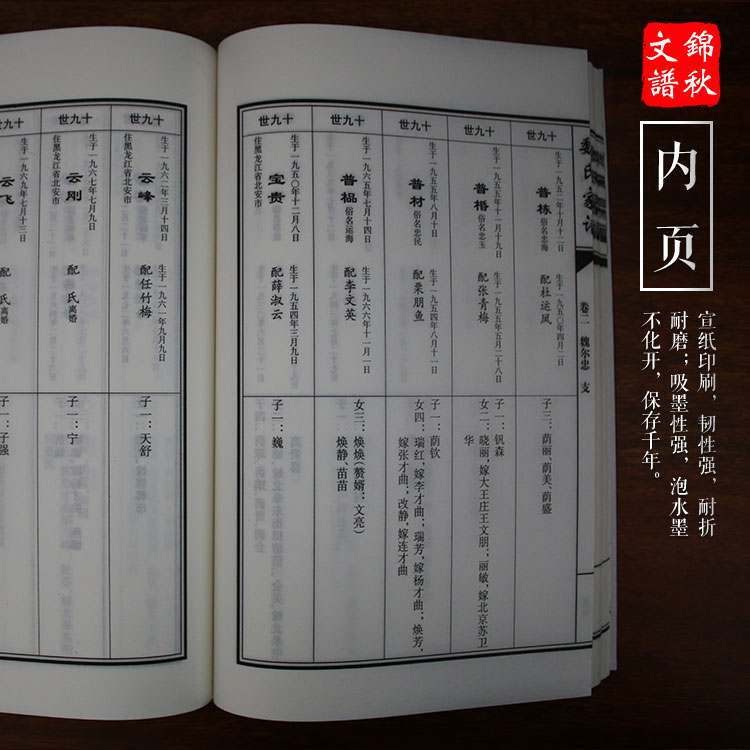 錦秋
文譜
内页
宣纸印刷，韧性强，耐折
耐磨；吸墨性强，泡水墨
不化开，保存千年。
卷二 魏尔忠 支
十九世
生于一九五二年十月十二日
普栋 俗名忠海
生于一九五〇年四月二日
配杜运凤
子三：荫丽、荫美、荫盛
十九世
生于一九五五年十一月十九日
普楿 俗名忠玉
生于一九五五年五月二十八日
配张青梅
子一：钒森
女二：晓丽，嫁大王庄王文朋；丽敏，嫁北京苏卫
华
十九世
生于一九五五年八月十日
普材 俗名忠民
生于一九五四年八月十一日
配栗朋鱼
子一：荫钦
女四：瑞红，嫁李才曲；瑞芳，嫁杨才曲；焕芳，
嫁张才曲；改静，嫁连才曲
十九世
生于一九六五年七月十四日
普榅 俗名运海
生于一九六六年十一月一日
配李文英
女三：焕焕（赘婿：文亮）
焕静、苗苗
十九世
生于一九五〇年十二月八日
宝贵
住黑龙江省北安市
生于一九五四年三月九日
配薛淑云
子一：巍
十九世
生于一九六二年三月十四日
云峰
住黑龙江省北安市
生于一九六一年九月九日
配任竹梅
子一：天舒
十九世
生于一九六七年七月九日
云刚
住黑龙江省北安市
配 氏 离婚
子一：宁
十九世
云飞
生于一九六九年七月十三日
配 氏 离婚
子一：子强